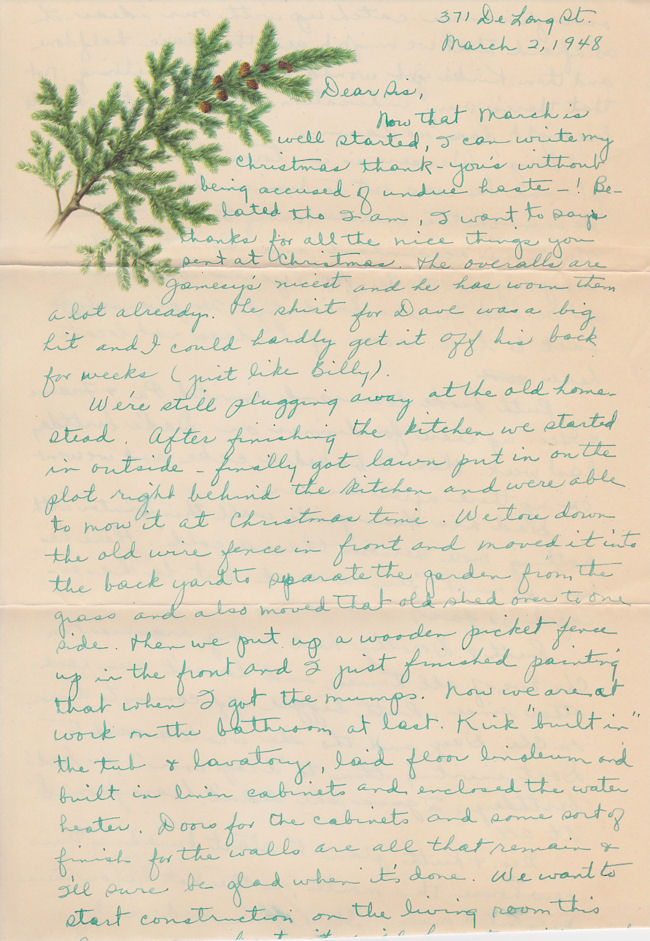 371 De Long St.
March 2, 1948
Dear Sis,
Now that March is
well started, I can write my
Christmas thank-you's without
being accused of undue haste-! Be-
lated tho I am, I want to say
thanks for all the nice things you
sent at Christmas. The overalls are
Jamesy's nicest and he has worn them
a lot already. The shirt for Dave was a big
hit and I could hardly get it off his back
for weeks (just like Billy).
We're still plugging away at the old home-
stead. After finishing the kitchen we started
in outside - finally got lawn put in on the
plot right behind the kitchen and were able
to mow it at Christmas time. We tore down
the old wire fence in front and moved it into
the back yard to separate the garden from the
grass and also moved that old shed over to one
side. Then we put up a wooden picket fence
up in the front and I just finished painting
that when I got the mumps. Now we are at
work on the bathroom at last. Kirk "built in"
the tub & lavatory, laid floor linoleum and
built in linen cabinets and enclosed the water
heater. Doors for the cabinets and some sort of
finish for the walls are all that remain &
I'll sure be glad when it's done. We want to
start construction on the living room this